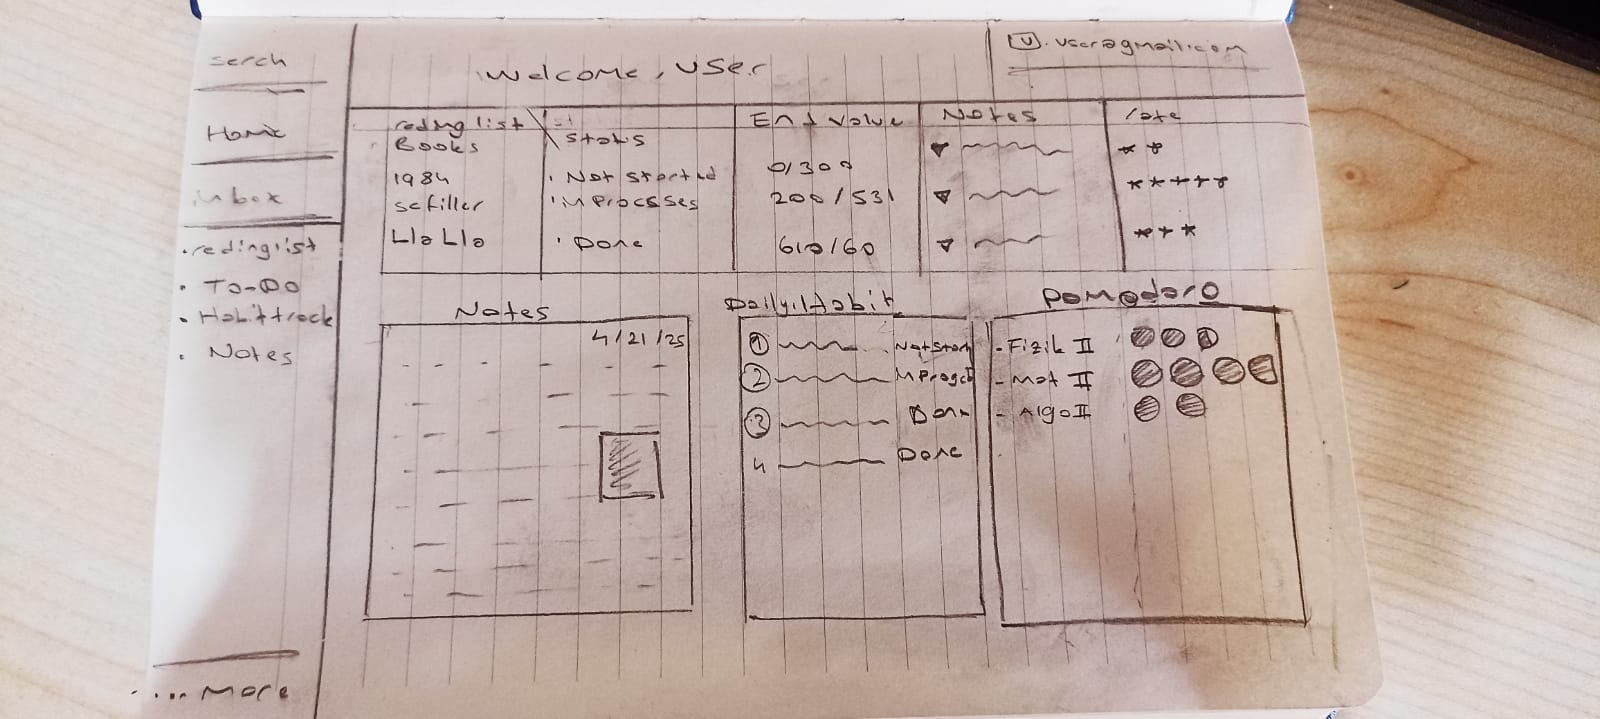 serch
Home
inbox
.redinglist
• To-Do
• Habit track
• Notes
.... More
Welcome, user
U .user@gmail.com
reding list
Books
Status
End Value
Notes
rate
1984
• Not started
0/300
scfiller
• in processes
200/531
Lla Lla
• Done
610/60
Notes
4/21/25
Daily.Habit
1 Not Start
2
3 Done
4 Done
Pomodoro
- Fizik II
- Mat II
- Algo II